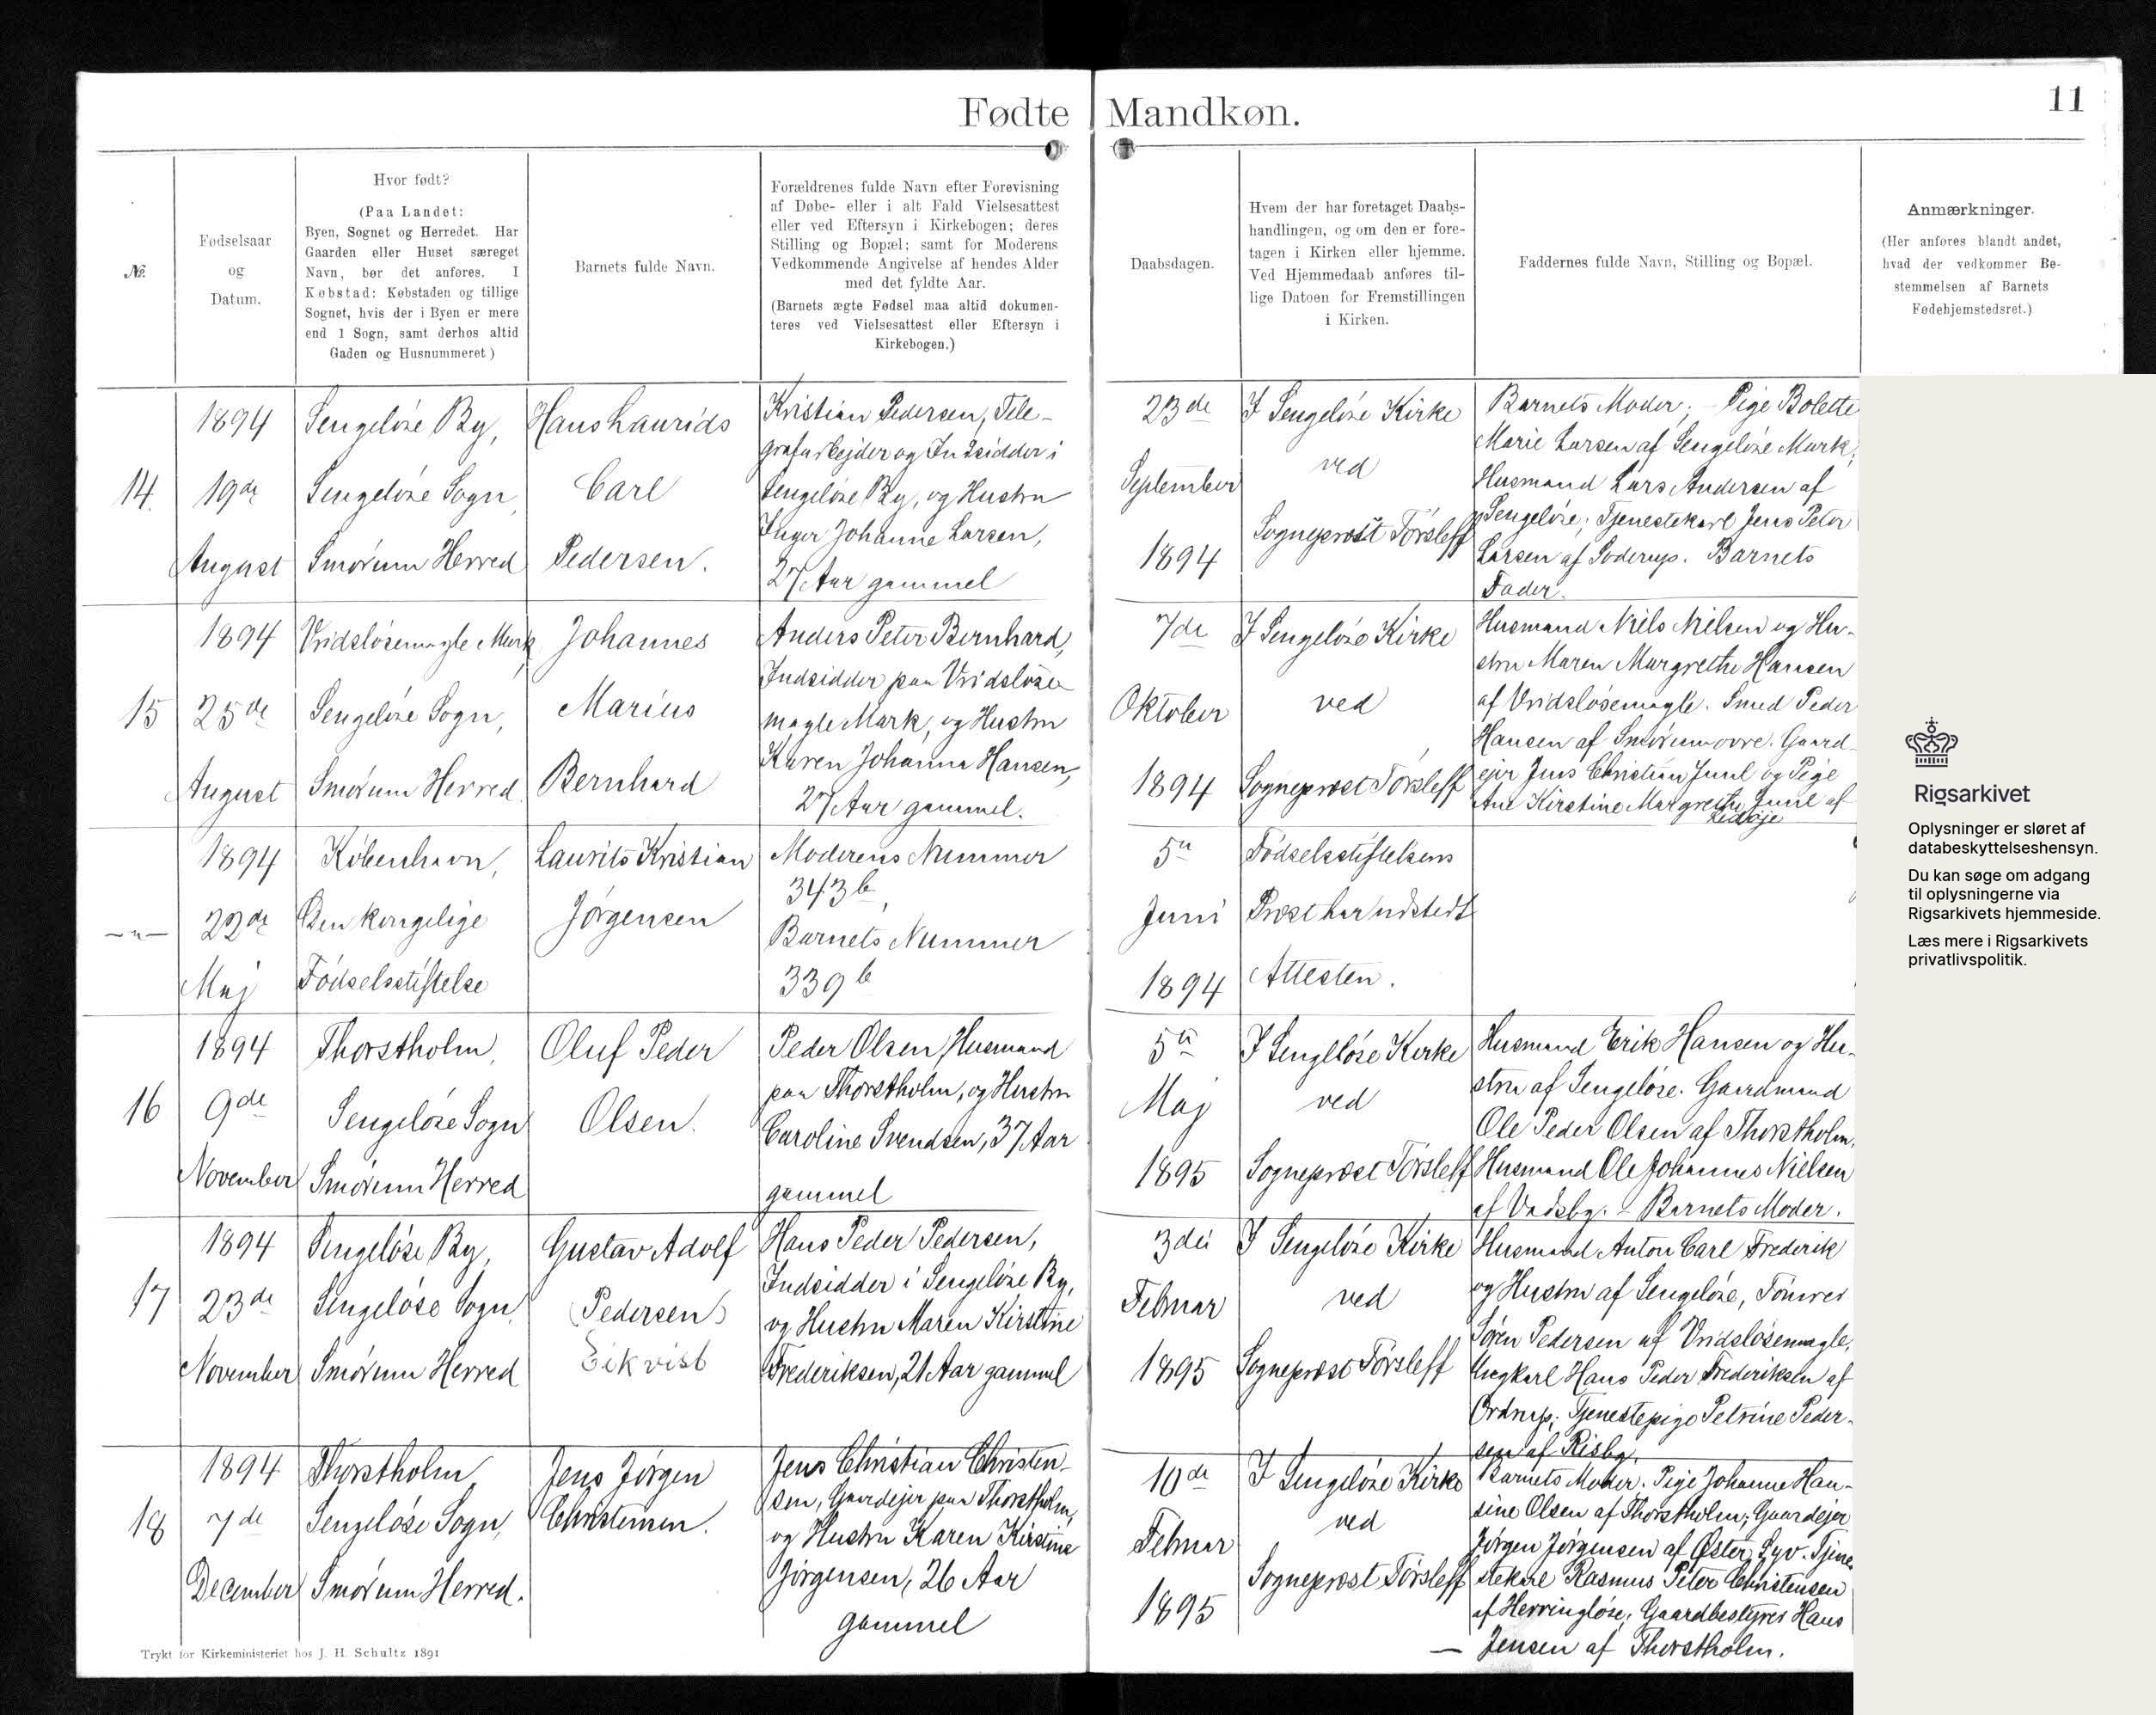 Fødte Mandkøn.
11
№
Fødselsaar
og
Datum.
Hvor født?
(Paa Landet:
Byen, Sognet og Herredet. Har
Gaarden eller Huset særeget
Navn, bør det anføres. I
Købstad: Købstaden og tillige
Sognet, hvis der i Byen er mere
end 1 Sogn, samt derhos altid
Gaden og Husnummeret)
Barnets fulde Navn.
Forældrenes fulde Navn efter Forevisning
af Døbe- eller i alt Fald Vielsesattest
eller ved Eftersyn i Kirkebogen; deres
Stilling og Bopæl; samt for Moderens
Vedkommende Angivelse af hendes Alder
med det fyldte Aar.
(Barnets ægte Fødsel maa altid dokumen-
teres ved Vielsesattest eller Eftersyn i
Kirkebogen.)
Daabsdagen.
Hvem der har foretaget Daabs-
handlingen, og om den er fore-
tagen i Kirken eller hjemme.
Ved Hjemmedaab anføres til-
lige Datoen for Fremstillingen
i Kirken.
Faddernes fulde Navn, Stilling og Bopæl.
Anmærkninger.
(Her anføres blandt andet,
hvad der vedkommer Be-
stemmelsen af Barnets
Fødehjemstedsret.)
14.
1894
19de
August
Sengeløse By,
Sengeløse Sogn,
Smørum Herred
Hans Laurids
Carl
Pedersen.
Kristian Pedersen, Tele-
grafarbejder og Indsidder i
Sengeløse By, og Hustru
Inger Johanne Larsen,
27 Aar gammel
23de
September
1894
I Sengeløse Kirke
ved
Sognepræst Tørsleff
Barnets Moder; Pige Bolette
Marie Larsen af Sengeløse Mark;
Husmand Lars Andersen af
Sengeløse; Tjenestekarl Jens Peter
Larsen af Soderup. Barnets
Fader.
15
1894
25de
August
Vridsløsemagle Mark,
Sengeløse Sogn,
Smørum Herred
Johannes
Marius
Bernhard
Anders Peter Bernhard,
Indsidder paa Vridsløse
magle Mark, og Hustru
Karen Johanna Hansen,
27 Aar gammel.
7de
Oktober
1894
I Sengeløse Kirke
ved
Sognepræst Tørsleff
Husmand Niels Nielsen og Hu-
stru Maren Margrethe Hansen
af Vridsløsemagle. Smed Peder
Hansen af Smørumovre. Gaard-
ejer Jens Christian Juul og Pige
Ane Kirstine Margrethe Juul af
Ledøje
—"—
1894
22de
Maj
København,
Den kongelige
Fødselsstiftelse
Laurits Kristian
Jørgensen
Moderens Nummer
343b,
Barnets Nummer
339b
5te
Juni
1894
Fødselsstiftelsens
Præst har udstedt
Attesten.
16
1894
9de
November
Thorstholm,
Sengeløse Sogn
Smørum Herred
Oluf Peder
Olsen.
Peder Olsen Husmand
paa Thorstholm, og Hustru
Caroline Svendsen, 37 Aar
gammel
5te
Maj
1895
I Sengeløse Kirke
ved
Sognepræst Tørsleff
Husmand Erik Hansen og Hu-
stru af Sengeløse. Gaardmand
Ole Peder Olsen af Thorstholm,
Husmand Ole Johannes Nielsen
af Vadsby. - Barnets Moder.
17
1894
23de
November
Sengeløse By,
Sengeløse Sogn,
Smørum Herred
Gustav Adolf
(Pedersen)
Eikvist
Hans Peder Pedersen,
Indsidder i Sengeløse By,
og Hustru Maren Kirstine
Frederiksen, 21 Aar gammel
3die
Februar
1895
I Sengeløse Kirke
ved
Sognepræst Tørsleff
Husmand Anton Carl Frederik
og Hustru af Sengeløse, Tømrer
Søren Pedersen af Vridsløsemagle,
Ungkarl Hans Peder Frederiksen af
Ordrup; Tjenestepige Petrine Peder-
sen af Risby.
18
1894
7de
December
Thorstholm,
Sengeløse Sogn,
Smørum Herred.
Jens Jørgen
Christensen.
Jens Christian Christen-
sen, Gaardejer paa Thorstholm,
og Hustru Karen Kirstine
Jørgensen, 26 Aar
gammel
10de
Februar
1895
I Sengeløse Kirke
ved
Sognepræst Tørsleff
Barnets Moder. Pige Johanne Han-
sine Olsen af Thorstholm; Gaardejer
Jørgen Jørgensen af Øster Syv. Tjene-
stekarl Rasmus Peter Christensen
af Herringløse; Gaardbestyrer Hans
— Jensen af Thorstholm.
Trykt for Kirkeministeriet hos J. H. Schultz 1891
Rigsarkivet
Oplysninger er sløret af
databeskyttelseshensyn.
Du kan søge om adgang
til oplysningerne via
Rigsarkivets hjemmeside.
Læs mere i Rigsarkivets
privatlivspolitik.